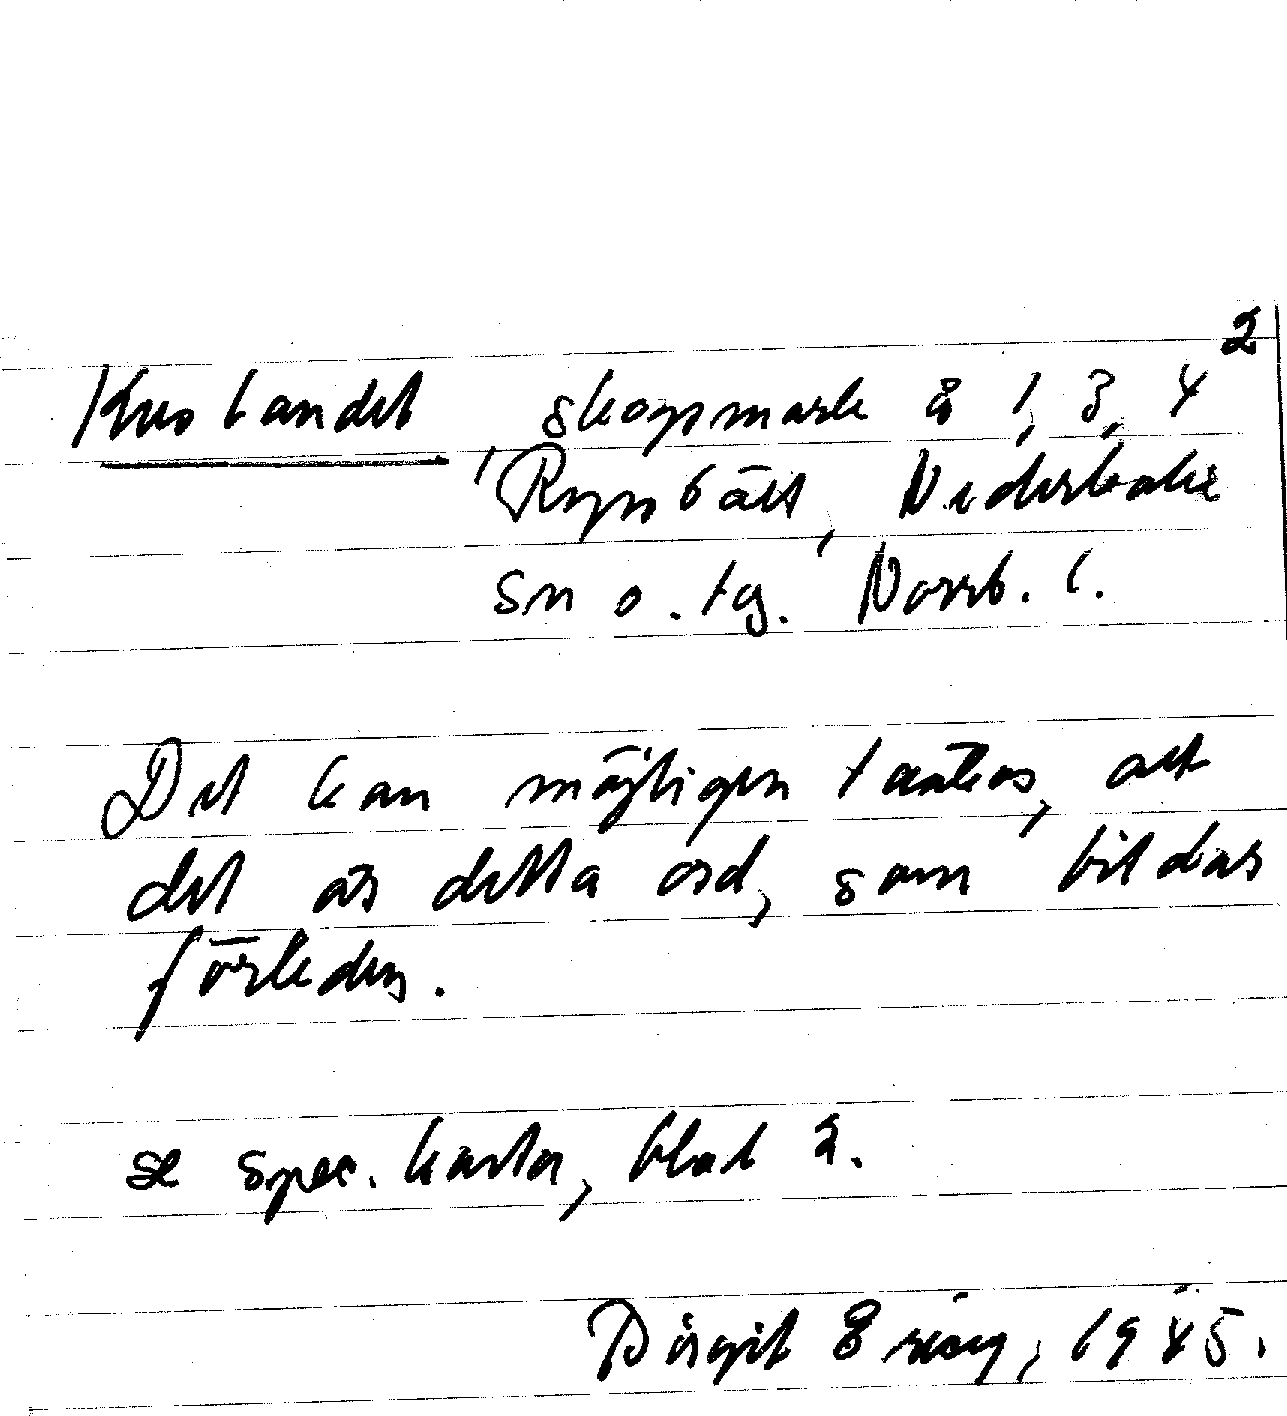 2
Kuslandet, skogsmark å 1, 3, 4
Rynbäck, Nederkalix
sn o. tg. Norrb. l.
Det kan möjligen tänkas, att
det är detta ord, som bildar
förleden.
se spec. karta, blad 2.
Birgit Ering, 1945.